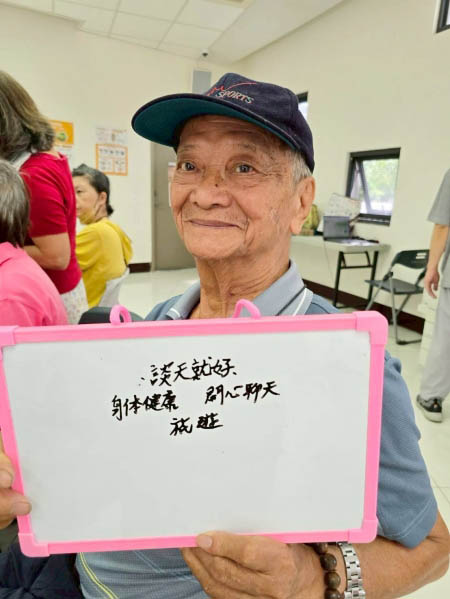 SPORTS
談天就好
身体健康 開心聊天
就遊